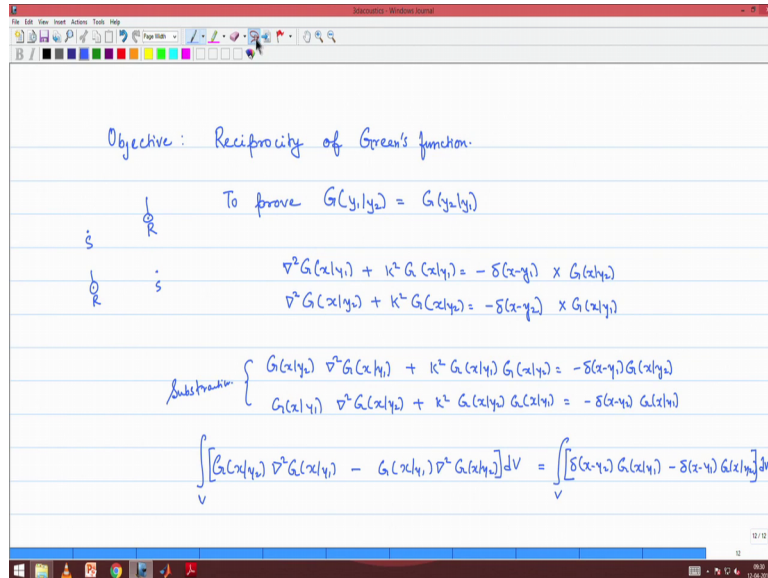 3dacoustics - Windows Journal
File Edit View Insert Actions Tools Help
Page Width
B I
Objective : Reciprocity of Green's function.
To prove G(y₁|y₂) = G(y₂|y₁)
R
S
R
S
∇²G(x|y₁) + K² G(x|y₁) = - δ(x-y₁) × G(x|y₂)
∇²G(x|y₂) + K² G(x|y₂) = - δ(x-y₂) × G(x|y₁)
Substraction { G(x|y₂) ∇²G(x|y₁) + K² G(x|y₁) G(x|y₂) = - δ(x-y₁) G(x|y₂)
G(x|y₁) ∇²G(x|y₂) + K² G(x|y₂) G(x|y₁) = - δ(x-y₂) G(x|y₁)
∫V [G(x|y₂) ∇²G(x|y₁) - G(x|y₁) ∇²G(x|y₂)] dV = ∫V [δ(x-y₂) G(x|y₁) - δ(x-y₁) G(x|y₂)] dV
12 / 12
12
09:30